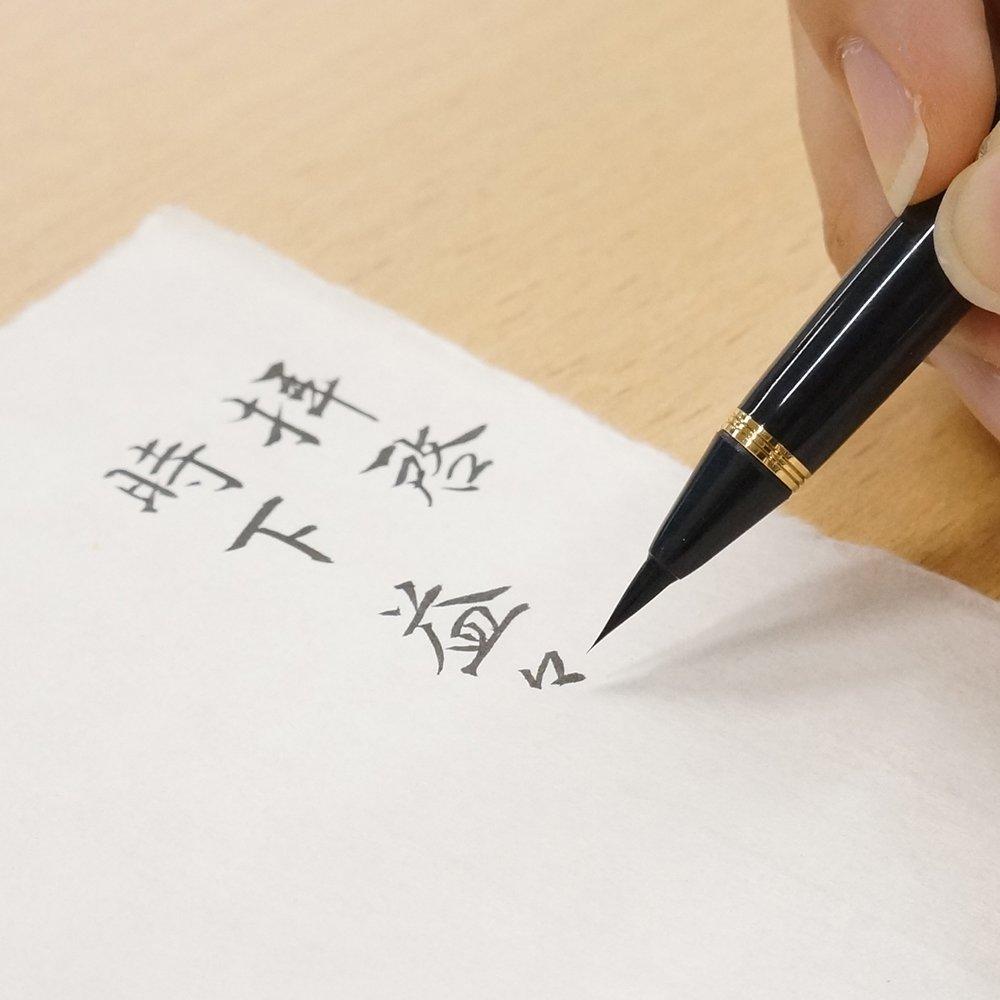 拝啓
時下 益々